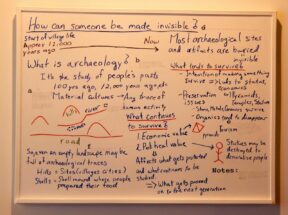 How can someone be made invisible?
Start of village life
Approx 12,000
years ago
Now
What is archaeology?
It's the study of people's pasts
100 yrs ago, 12,000 years ago etc
Material cultures → Any trace of
human activity
river
road
Say, even an empty landscape may be
full of archaeological traces
Hills = Sites (villages, cities?)
Shells = Shell mound where people
prepared their food
Most archaeological sites
and artifacts are buried
invisible
What tends to survive?
- Intentionality of making something
Survive → tools, tools
statues, economies
- Preservation → Pyramids,
issues
Temples, tombs
- Stone, Metal, ceramics survive
- Organics tend to disappear
What continues
to survive?
1. Economic value
2. Political value
tourism
Affects what gets protected
and what continues to be
studied
→ What gets passed
on to the next generation
Statues may be
destroyed to
demoralise people
Notes: